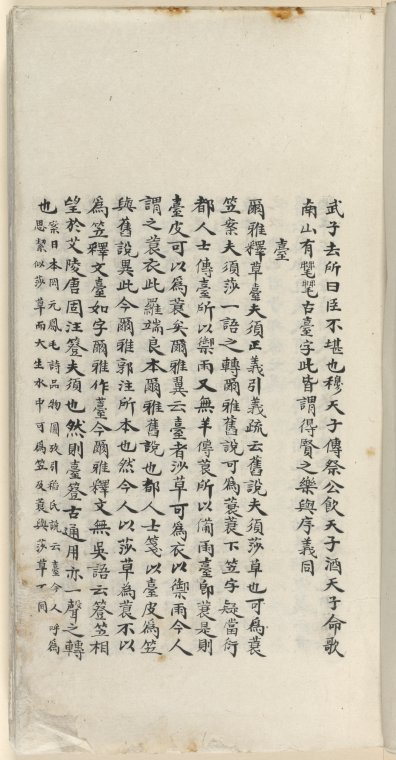 武子去所曰臣不堪也穆天子傳祭公飲天子酒天子命歌
南山有䑓䑓古臺字此皆謂得賢之樂與序義同
臺
爾雅釋草臺夫須正義引義疏云舊說夫須莎草也可為蓑
笠案夫須莎一語之轉爾雅舊說可為蓑蓑下笠字疑當衍
都人士傳臺所以禦雨又無羊傳蓑所以備雨臺即蓑是則
臺皮可以為蓑矣爾雅翼云臺者沙草可為衣以禦雨今人
謂之蓑衣此羅端良本爾雅舊說也都人士箋以臺皮為笠
與舊說異此今爾雅郭注所本也然今人以莎草為蓑不以
為笠釋文臺如字爾雅作薹今爾雅釋文無吳語云簦笠相
望於艾陵唐固注簦夫須也然則臺簦古通用亦一聲之轉
也案日本岡元鳳毛詩品物圖攷引稻氏說云臺今人呼為
思絜似莎草而大生水中可為笠及蓑與莎草不同